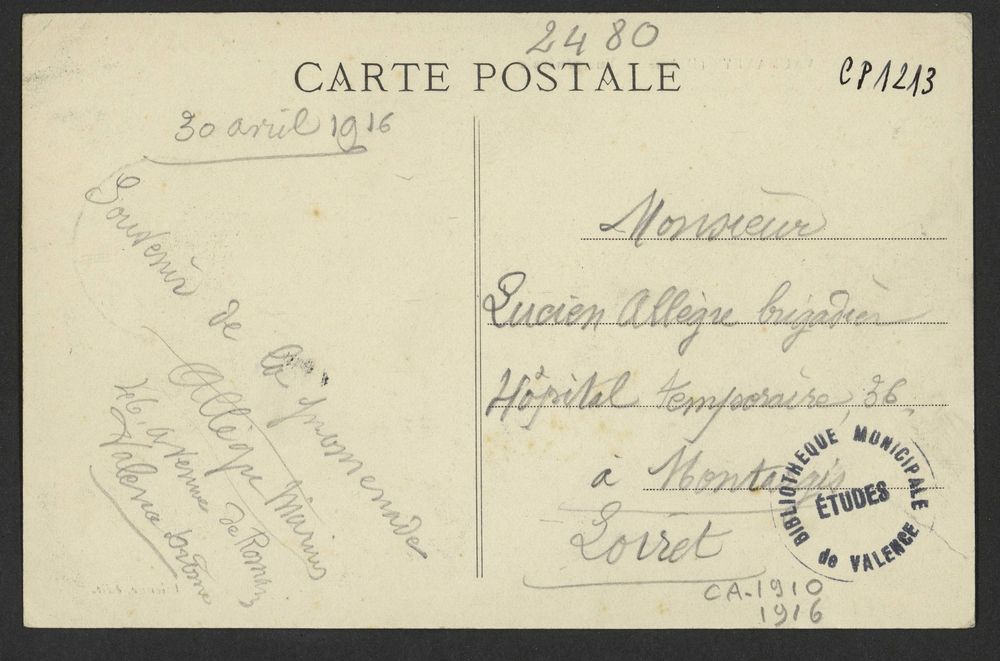 2480
CARTE POSTALE
CP1213
30 avril 1916
Souvenir de la promenade
Allègre Marius
46, avenue de Romans
Valence Drôme
Monsieur
Lucien Allègre brigadier
Hôpital temporaire 36
à Montargis
Loiret
BIBLIOTHEQUE MUNICIPALE
ÉTUDES
de VALENCE
CA-1910
1916